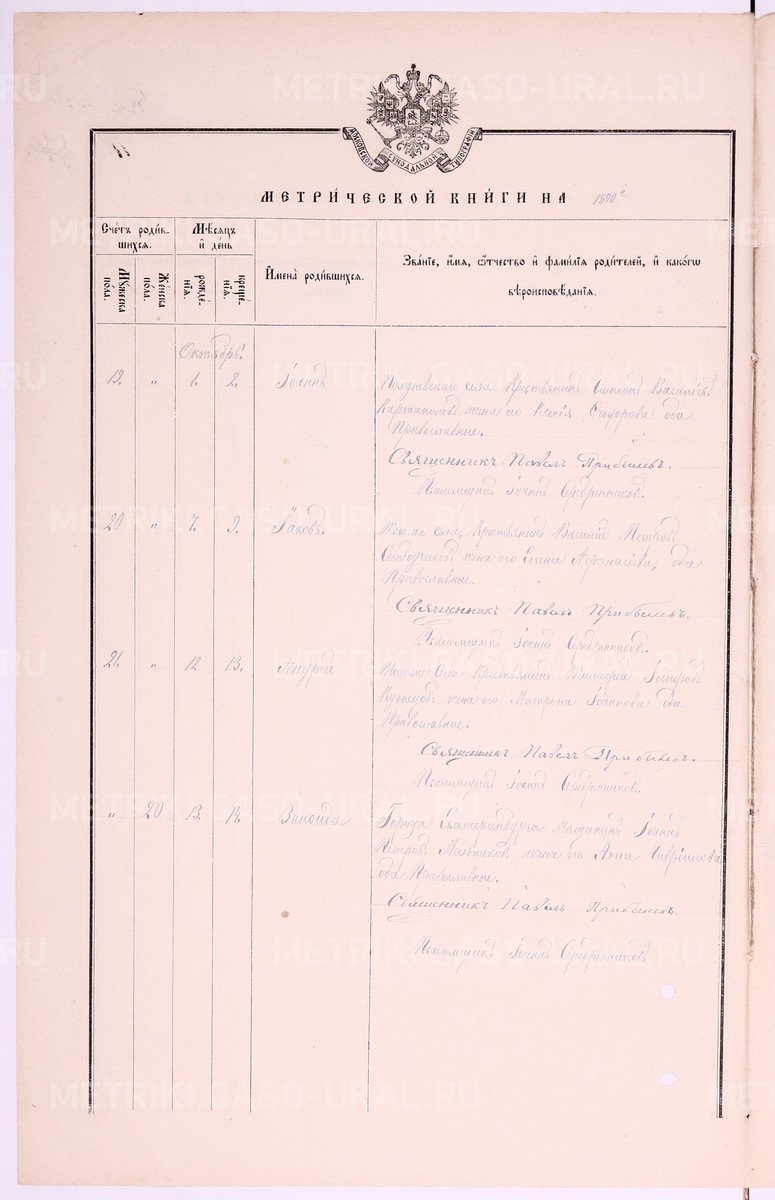 METRIKI.GASO-URAL.RU
МОСКОВСКОЙ СѴНОДАЛЬНОЙ ТѴПОГРАФІИ
МЕТРИ́ЧЕСКОЙ КНИ́ГИ НА 1890 й
Сче́тъ роди́вшихся.
Му́жеска по́ла.
Же́нска по́ла.
Мѣ́сяцъ и҆ де́нь
рожде́нїя.
креще́нїя.
И҆мена̀ роди́вшихся.
Зва́нїе, и҆́мя, ѻ҆́тчество и҆ фами́лїя роди́телей, и҆ како́гѡ
вѣроисповѣ́данїя.
Октябрь.
19. " 1. 2. Іоаннъ
Полдневскаго села Крестьянинъ Симеонъ Васильевъ
жена его Ксенія оба
Православные.
Священникъ Павелъ Прибылевъ.
Псаломщикъ Іоаннъ Серебренниковъ.
20 " 7. 9. Іаковъ.
Того же села, Крестьянинъ Василій Петровъ
жена его Елена Афанасіева, оба
Православные.
Священникъ Павелъ Прибылевъ.
Псаломщикъ Іоаннъ Серебренниковъ.
21. " 12 13. Андрей
Того же Села Крестьянинъ Тимофей Іосифовъ
жена его Матрона Іоаннова оба
Православные.
Священникъ Павелъ Прибылевъ.
Псаломщикъ Іоаннъ Серебренниковъ.
" 20 13. 14. Зиноида
Города Екатеринбурга Мѣщанинъ Іоаннъ
Петровъ жена его Анна Гавріилова
оба Православные.
Священникъ Павелъ Прибылевъ.
Псаломщикъ Іоаннъ Серебренниковъ